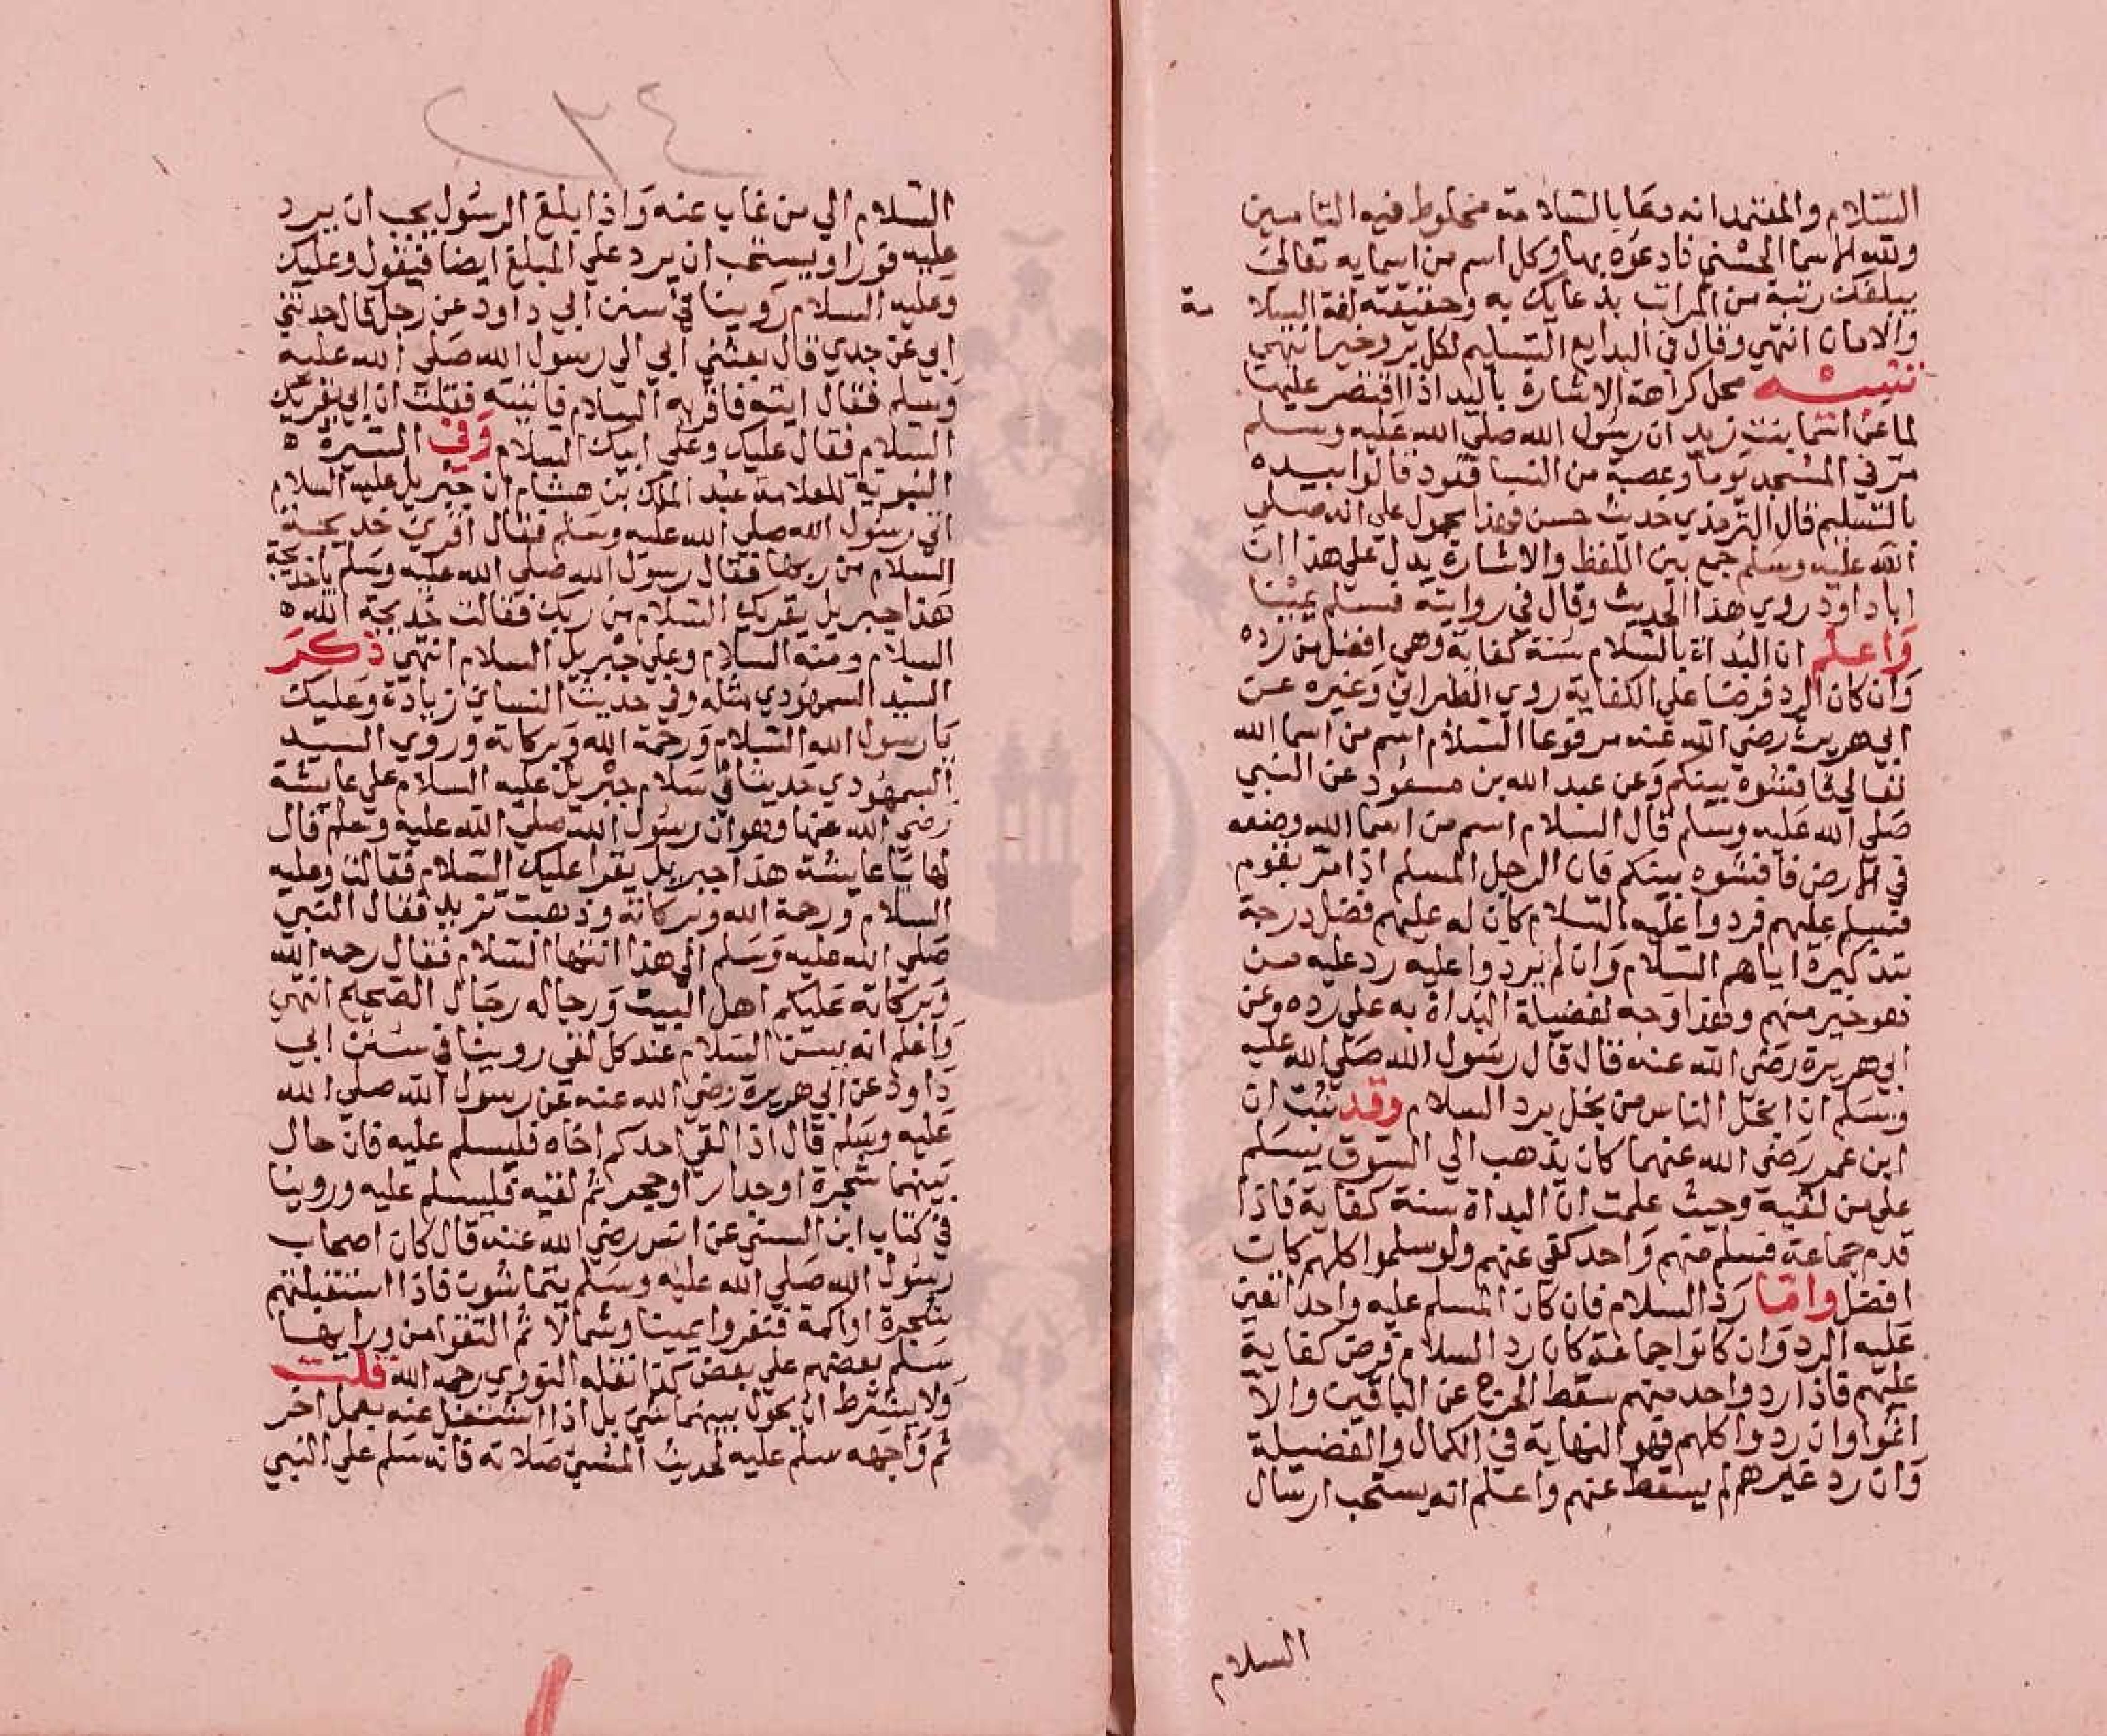 السلام والمعتمد انه دعا بالسلامة مخلوط فيه التامين
ولله الاسما الحسني فادعوه بها وكل اسم من اسمايه تعالي
يبلغك رتبة من المراتب بدعايك به وحقيقته لغة السلا مة
والامان انتهي وقال في البدايع التسليم لكل يرد خيرا انتهي
تنبيه محل كراهة الاشارة باليد اذا اقتصر عليها
لما عن اسما بنت زيد ان رسول الله صلي الله عليه وسلم
مر في المسجد يوما وعصبة من النسا قعود بيده
بالتسليم قال الترمذي حديث حسن فهذا محمول علي انه صلي
الله عليه وسلم جمع بين اللفظ والاشارة يدل علي هذا ان
ابا داود روي هذا الحديث وقال في روايته فسلم علينا
واعلم ان البداة بالسلام سنة كفاية وهي افضل من رده
وان كان الرد فرضا علي الكفاية روي الطبراني وغيره عن
ابي هريرة رضي الله عنه مرفوعا السلام اسم من اسما الله
تعالي فافشوه بينكم وعن عبد الله بن مسعود عن النبي
صلي الله عليه وسلم قال السلام اسم من اسما الله وضعه
في الارض فافشوه بينكم فان الرجل المسلم اذا مر بقوم
فسلم عليهم فردوا عليه السلام كان له عليهم فضل درجة
بتذكيره اياهم السلام وان لم يردوا عليه رد عليه من
هو خير منهم وهذا وجه لفضيلة البداة به علي رده وعن
ابي هريرة رضي الله عنه قال قال رسول الله صلي الله عليه
وسلم ان ابخل الناس من بخل برد السلام وقد ثبت ان
ابن عمر رضي الله عنهما كان يذهب الي السوق يسلم
علي من لقيه وحيث علمت ان البداة سنة كفاية فاذا
قدم جماعة فسلم منهم واحد كفي عنهم ولو سلموا كلهم كان
افضل واما رد السلام فان كان المسلم عليه واحد تعين
عليه الرد وان كانوا جماعة كان رد السلام فرض كفاية
عليهم فاذا رد واحد منهم سقط الحرج عن الباقين والا
اثموا وان ردوا كلهم فهو النهاية في الكمال والفضيلة
وان رد غيرهم لم يسقط عنهم واعلم انه يستحب ارسال
السلام
٣٤
السلام الي من غاب عنه واذا بلغ الرسول يجب ان يرد
عليه فورا ويستحب ان يرد علي المبلغ ايضا فيقول وعليك
وعليه السلام روينا في سنن ابي داود عن رجل قال حدثني
ابي عن جدي قال بعثني ابي الي رسول الله صلي الله عليه
وسلم فقال ايته فاقريه السلام فاتيته فقلت ان ابي يقريك
السلام فقال عليك وعلي ابيك السلام وفي السيرة
النبوية للعلامة عبد الملك بن هشام ان جبريل عليه السلام
اتي رسول الله صلي الله عليه وسلم فقال اقري خديجة
السلام من ربها فقال رسول الله صلي الله عليه وسلم يا خديجة
هذا جبريل يقريك السلام من ربك فقالت خديجة الله
السلام ومنه السلام وعلي جبريل السلام انتهي ذكر
السيد السمهودي مثله وفي حديث النساي زيادة وعليك
يا رسول الله السلام ورحمة الله وبركاته وروي السيد
السمهودي حديثا في سلام جبريل عليه السلام علي عايشة
رضي الله عنها وهو ان رسول الله صلي الله عليه وسلم قال
لها يا عايشة هذا جبريل يقرا عليك السلام فقالت وعليه
السلام ورحمة الله وبركاته وذهبت تزيد فقال النبي
صلي الله عليه وسلم الي هذا انتها السلام فقال رحمه الله
وبركاته عليكم اهل البيت ورجاله رجال الصحيح انتهي
واعلم انه يسن السلام عند كل لقي روينا في سنن ابي
داود عن ابي هريرة رضي الله عنه عن رسول الله صلي الله
عليه وسلم قال اذا لقي احدكم اخاه فليسلم عليه فان حال
بينهما شجرة او جدار او حجر ثم لقيه فليسلم عليه وروينا
في كتاب ابن السني عن انس رضي الله عنه قال كان اصحاب
رسول الله صلي الله عليه وسلم يتماشون فاذا استقبلتهم
شجرة او اكمة فتفرقوا يمينا وشمالا ثم التقوا من ورايها
سلم بعضهم علي بعض كذا نقله النووي رحمه الله قلت
ولا يشترط ان يحول بينهما شي بل اذا اشتغل عنه بعمل اخر
ثم واجهه سلم عليه لحديث المسي صلاته فانه سلم علي النبي